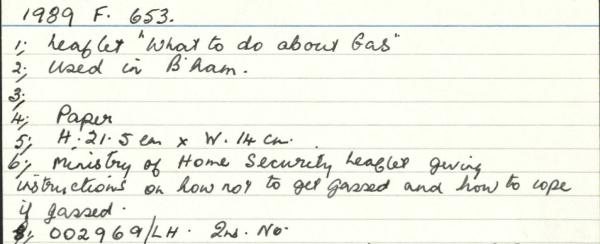 1989 F. 653.
1; Leaflet "What to do about Gas"
2; Used in B'ham.
3;
4; Paper
5; H. 21.5 cm x W. 14 cm.
6; Ministry of Home Security Leaflet giving
instructions on how not to get gassed and how to cope
if gassed.
8; 002969/LH. 2nd. No.